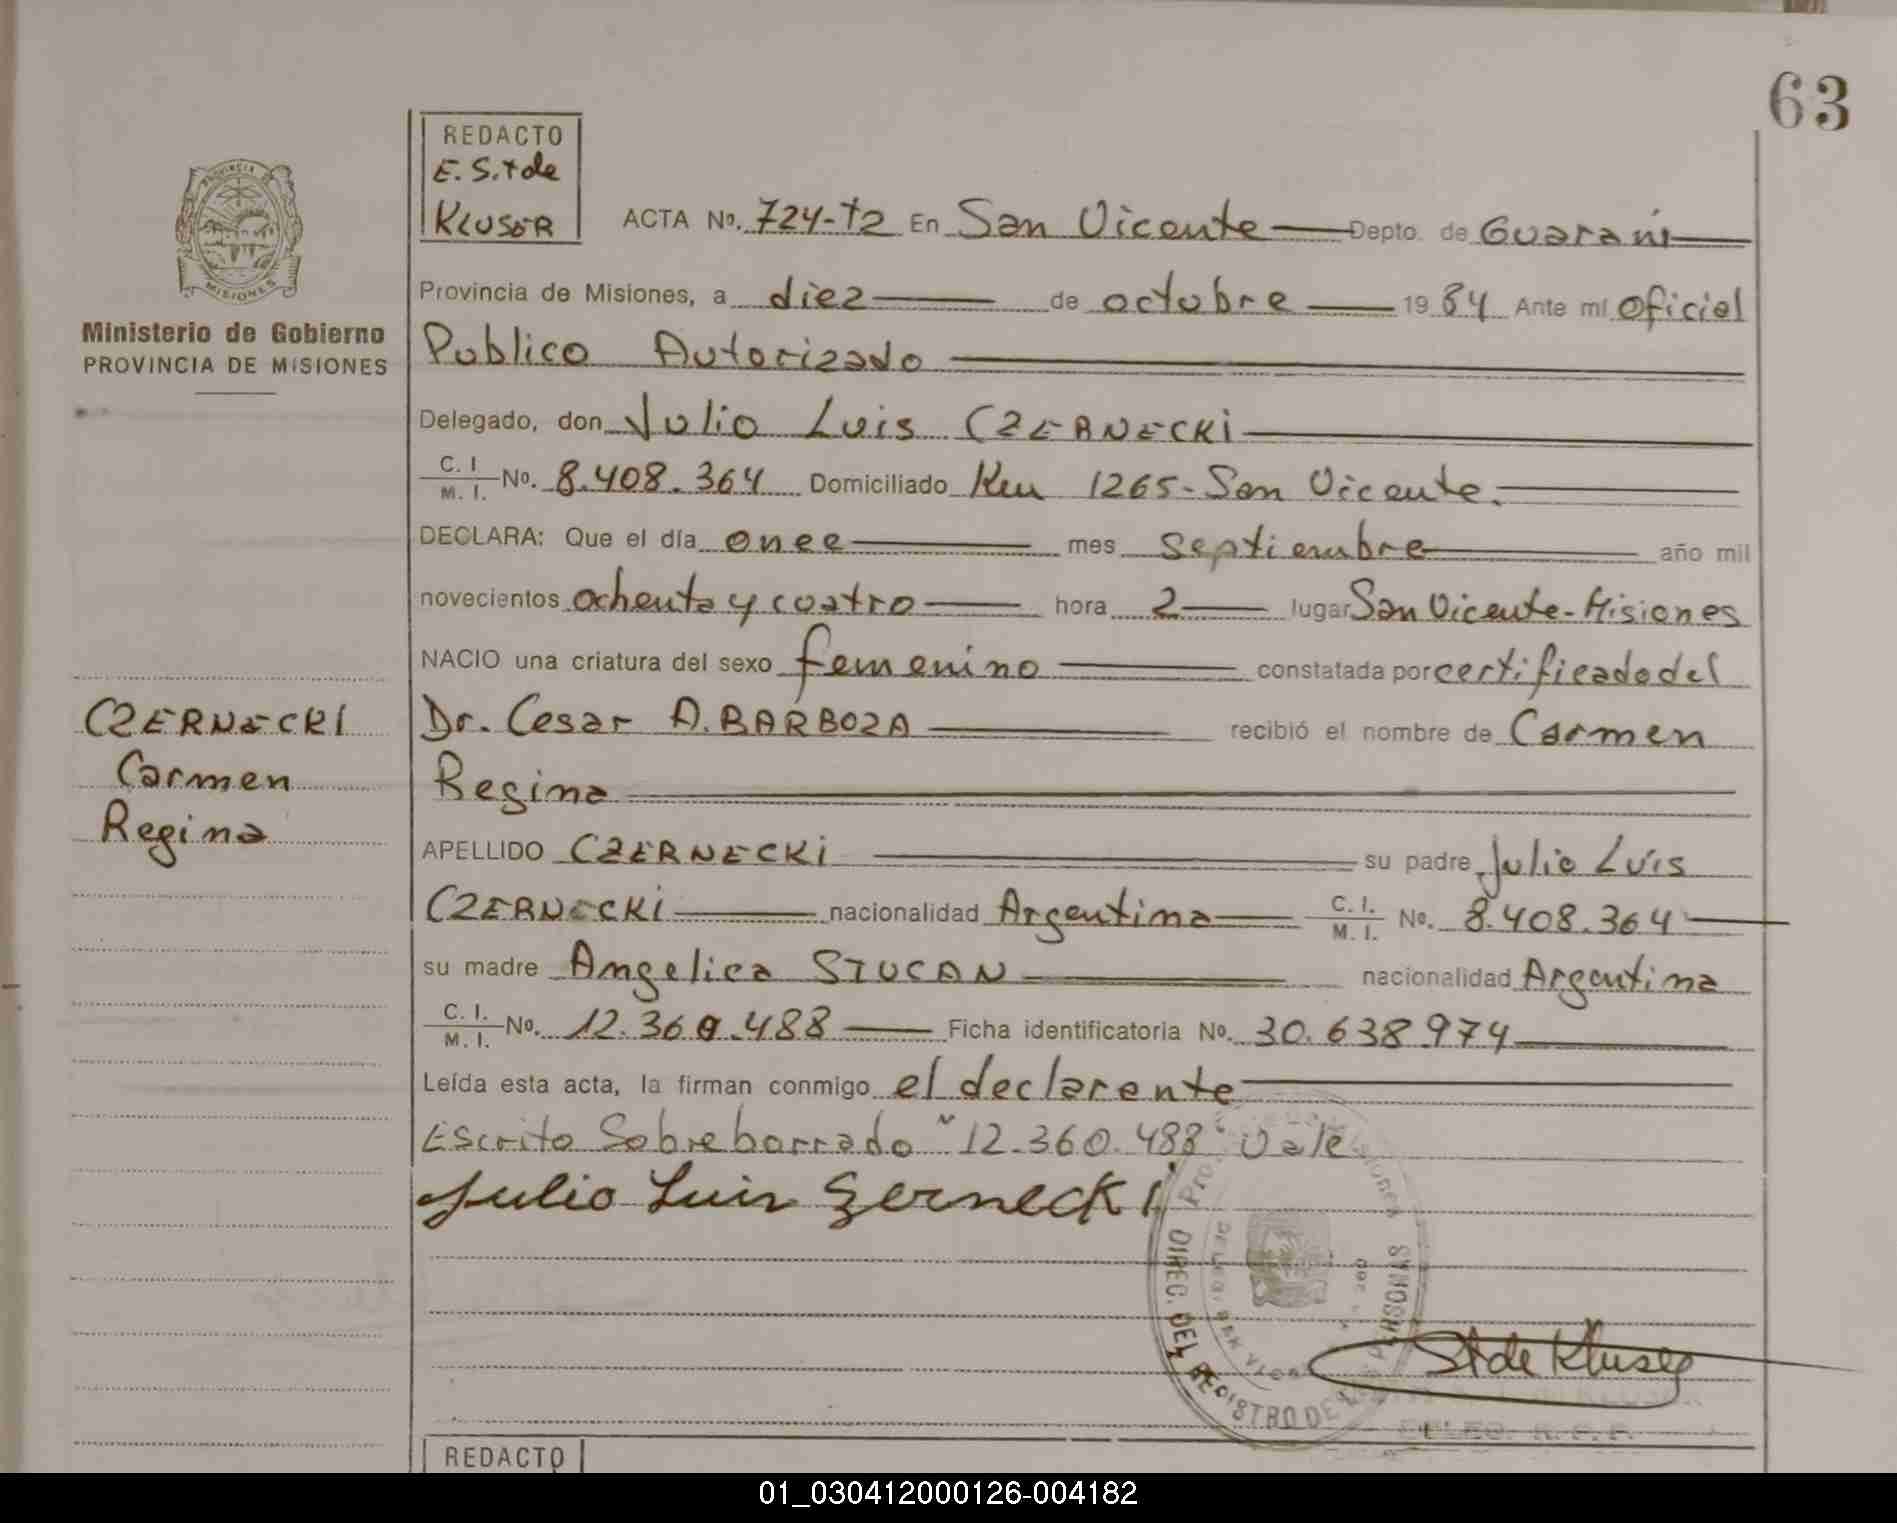 63
REDACTO
E. S. t de
KLUSER
ACTA No. 724-T2 En San Vicente Depto. de Guarani
PROVINCIA DE
MISIONES
Provincia de Misiones, a diez de octubre 1984 Ante mi oficial
Ministerio de Gobierno
PROVINCIA DE MISIONES
Publico Autorizado
Delegado, don Julio Luis CZERNECKI
C. I. / M. I. No. 8.408.364 Domiciliado Km 1265 - San Vicente.
DECLARA: Que el día once mes septiembre año mil
novecientos ochenta y cuatro hora 2 lugar San Vicente - Misiones
NACIO una criatura del sexo femenino constatada por certificado del
CZERNECKI
Carmen
Regina
Dr. Cesar A. BARBOZA recibió el nombre de Carmen
Regina
APELLIDO CZERNECKI su padre Julio Luis
CZERNECKI nacionalidad Argentina C. I. / M. I. No. 8.408.364
su madre Angelica STUCAN nacionalidad Argentina
C. I. / M. I. No. 12.360.488 Ficha identificatoria No. 30.638.974
Leída esta acta, la firman conmigo el declarente
Escrito Sobreborrado "12.360.488" Vale
Julio Luis Zerneck i
DIREC. DEL REGISTRO DE PERSONAS
St de Kluser
DELEG. R. P. P.
REDACTO
01_030412000126-004182